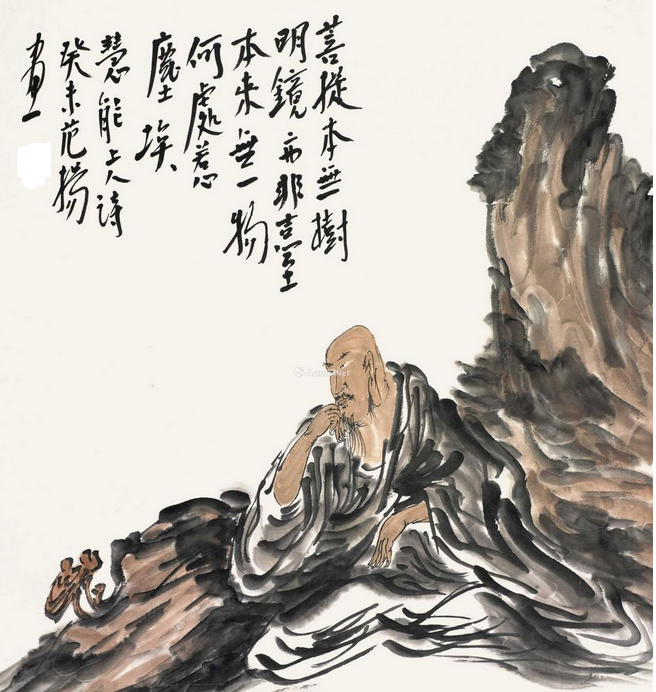 菩提本無樹
明鏡亦非臺
本來無一物
何處惹
塵埃
慧能上人詩
癸未范揚
畫